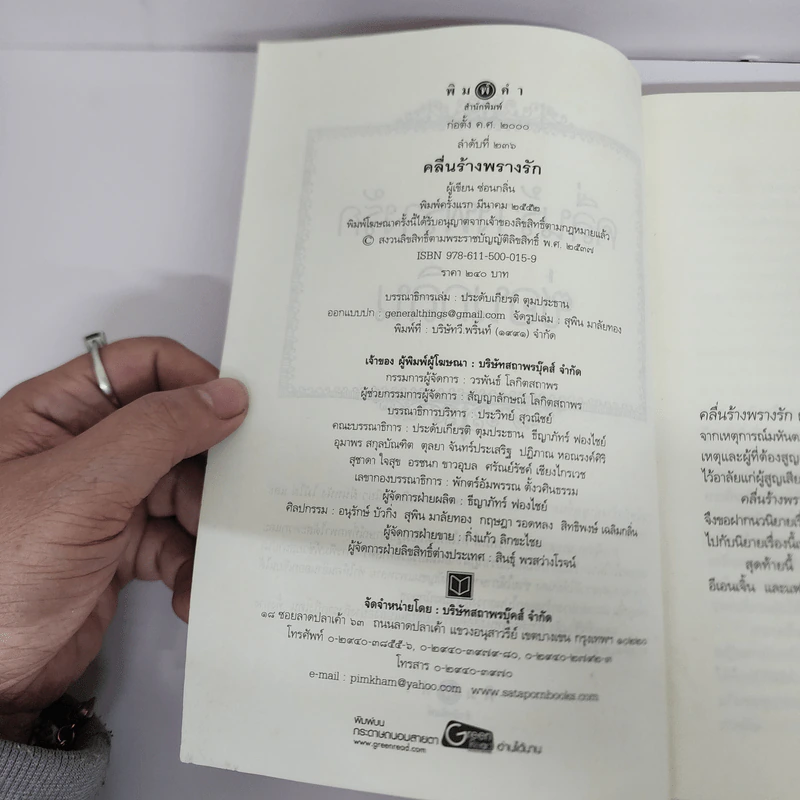 พิมพ์คำ
สำนักพิมพ์
ก่อตั้ง ค.ศ. ๒๐๐๐
ลำดับที่ ๒๓๖
คลื่นร้างพรางรัก
ผู้เขียน ซ่อนกลิ่น
พิมพ์ครั้งแรก มีนาคม ๒๕๕๒
พิมพ์โฆษณาครั้งนี้ได้รับอนุญาตจากเจ้าของลิขสิทธิ์ตามกฎหมายแล้ว
© สงวนลิขสิทธิ์ตามพระราชบัญญัติลิขสิทธิ์ พ.ศ. ๒๕๓๗
ISBN 978-611-500-015-9
ราคา ๒๔๐ บาท
บรรณาธิการเล่ม : ประดับเกียรติ ตุมประธาน
ออกแบบปก : generalthings@gmail.com จัดรูปเล่ม : สุพิน มาลัยทอง
พิมพ์ที่ : บริษัทวี.พริ้นท์ (๑๙๙๑) จำกัด
เจ้าของ ผู้พิมพ์ผู้โฆษณา : บริษัทสถาพรบุ๊คส์ จำกัด
กรรมการผู้จัดการ : วรพันธ์ โลกิตสถาพร
ผู้ช่วยกรรมการผู้จัดการ : สัญญาลักษณ์ โลกิตสถาพร
บรรณาธิการบริหาร : ประวิทย์ สุวณิชย์
คณะบรรณาธิการ : ประดับเกียรติ ตุมประธาน ธีญาภัทร์ ฟองไชย์
อุมาพร สกุลบัณฑิต ตุลยา จันทร์ประเสริฐ ปฏิภาณ หอณรงค์ศิริ
สุชาดา ใจสุข อรชนก ขาวอุบล ศรัณย์รัชต์ เชียงไกรเวช
เลขากองบรรณาธิการ : พักตร์อัมพรรณ ตั้งวศินธรรม
ผู้จัดการฝ่ายผลิต : ธีญาภัทร์ ฟองไชย์
ศิลปกรรม : อนุรักษ์ บัวกิ่ง สุพิน มาลัยทอง กฤษฎา รอดหลง สิทธิพงษ์ เฉลิมกลิ่น
ผู้จัดการฝ่ายขาย : กิ่งแก้ว ลิกขะไชย
ผู้จัดการฝ่ายลิขสิทธิ์ต่างประเทศ : สินธุ์ พรสว่างโรจน์
จัดจำหน่ายโดย : บริษัทสถาพรบุ๊คส์ จำกัด
๑๘ ซอยลาดปลาเค้า ๖๓ ถนนลาดปลาเค้า แขวงอนุสาวรีย์ เขตบางเขน กรุงเทพฯ ๑๐๒๒๐
โทรศัพท์ ๐-๒๙๔๐-๓๘๕๕-๖, ๐-๒๙๔๐-๓๙๗๙-๘๐, ๐-๒๙๔๐-๒๗๙๒-๓
โทรสาร ๐-๒๙๔๐-๓๙๗๐
e-mail : pimkham@yahoo.com www.satapornbooks.com
พิมพ์บน
กระดาษถนอมสายตา
www.greenread.com
Green
Read
อ่านได้นาน
คลื่นร้างพรางรัก
จากเหตุการณ์มหันต
เหตุและผู้ที่ต้องสูญ
ไว้อาลัยแก่ผู้สูญเสีย
คลื่นร้างพรา
จึงขอฝากนวนิยายเรื่
ไปกับนิยายเรื่องนี้เ
สุดท้ายนี้
อีเอนเจิ้น และแฟ